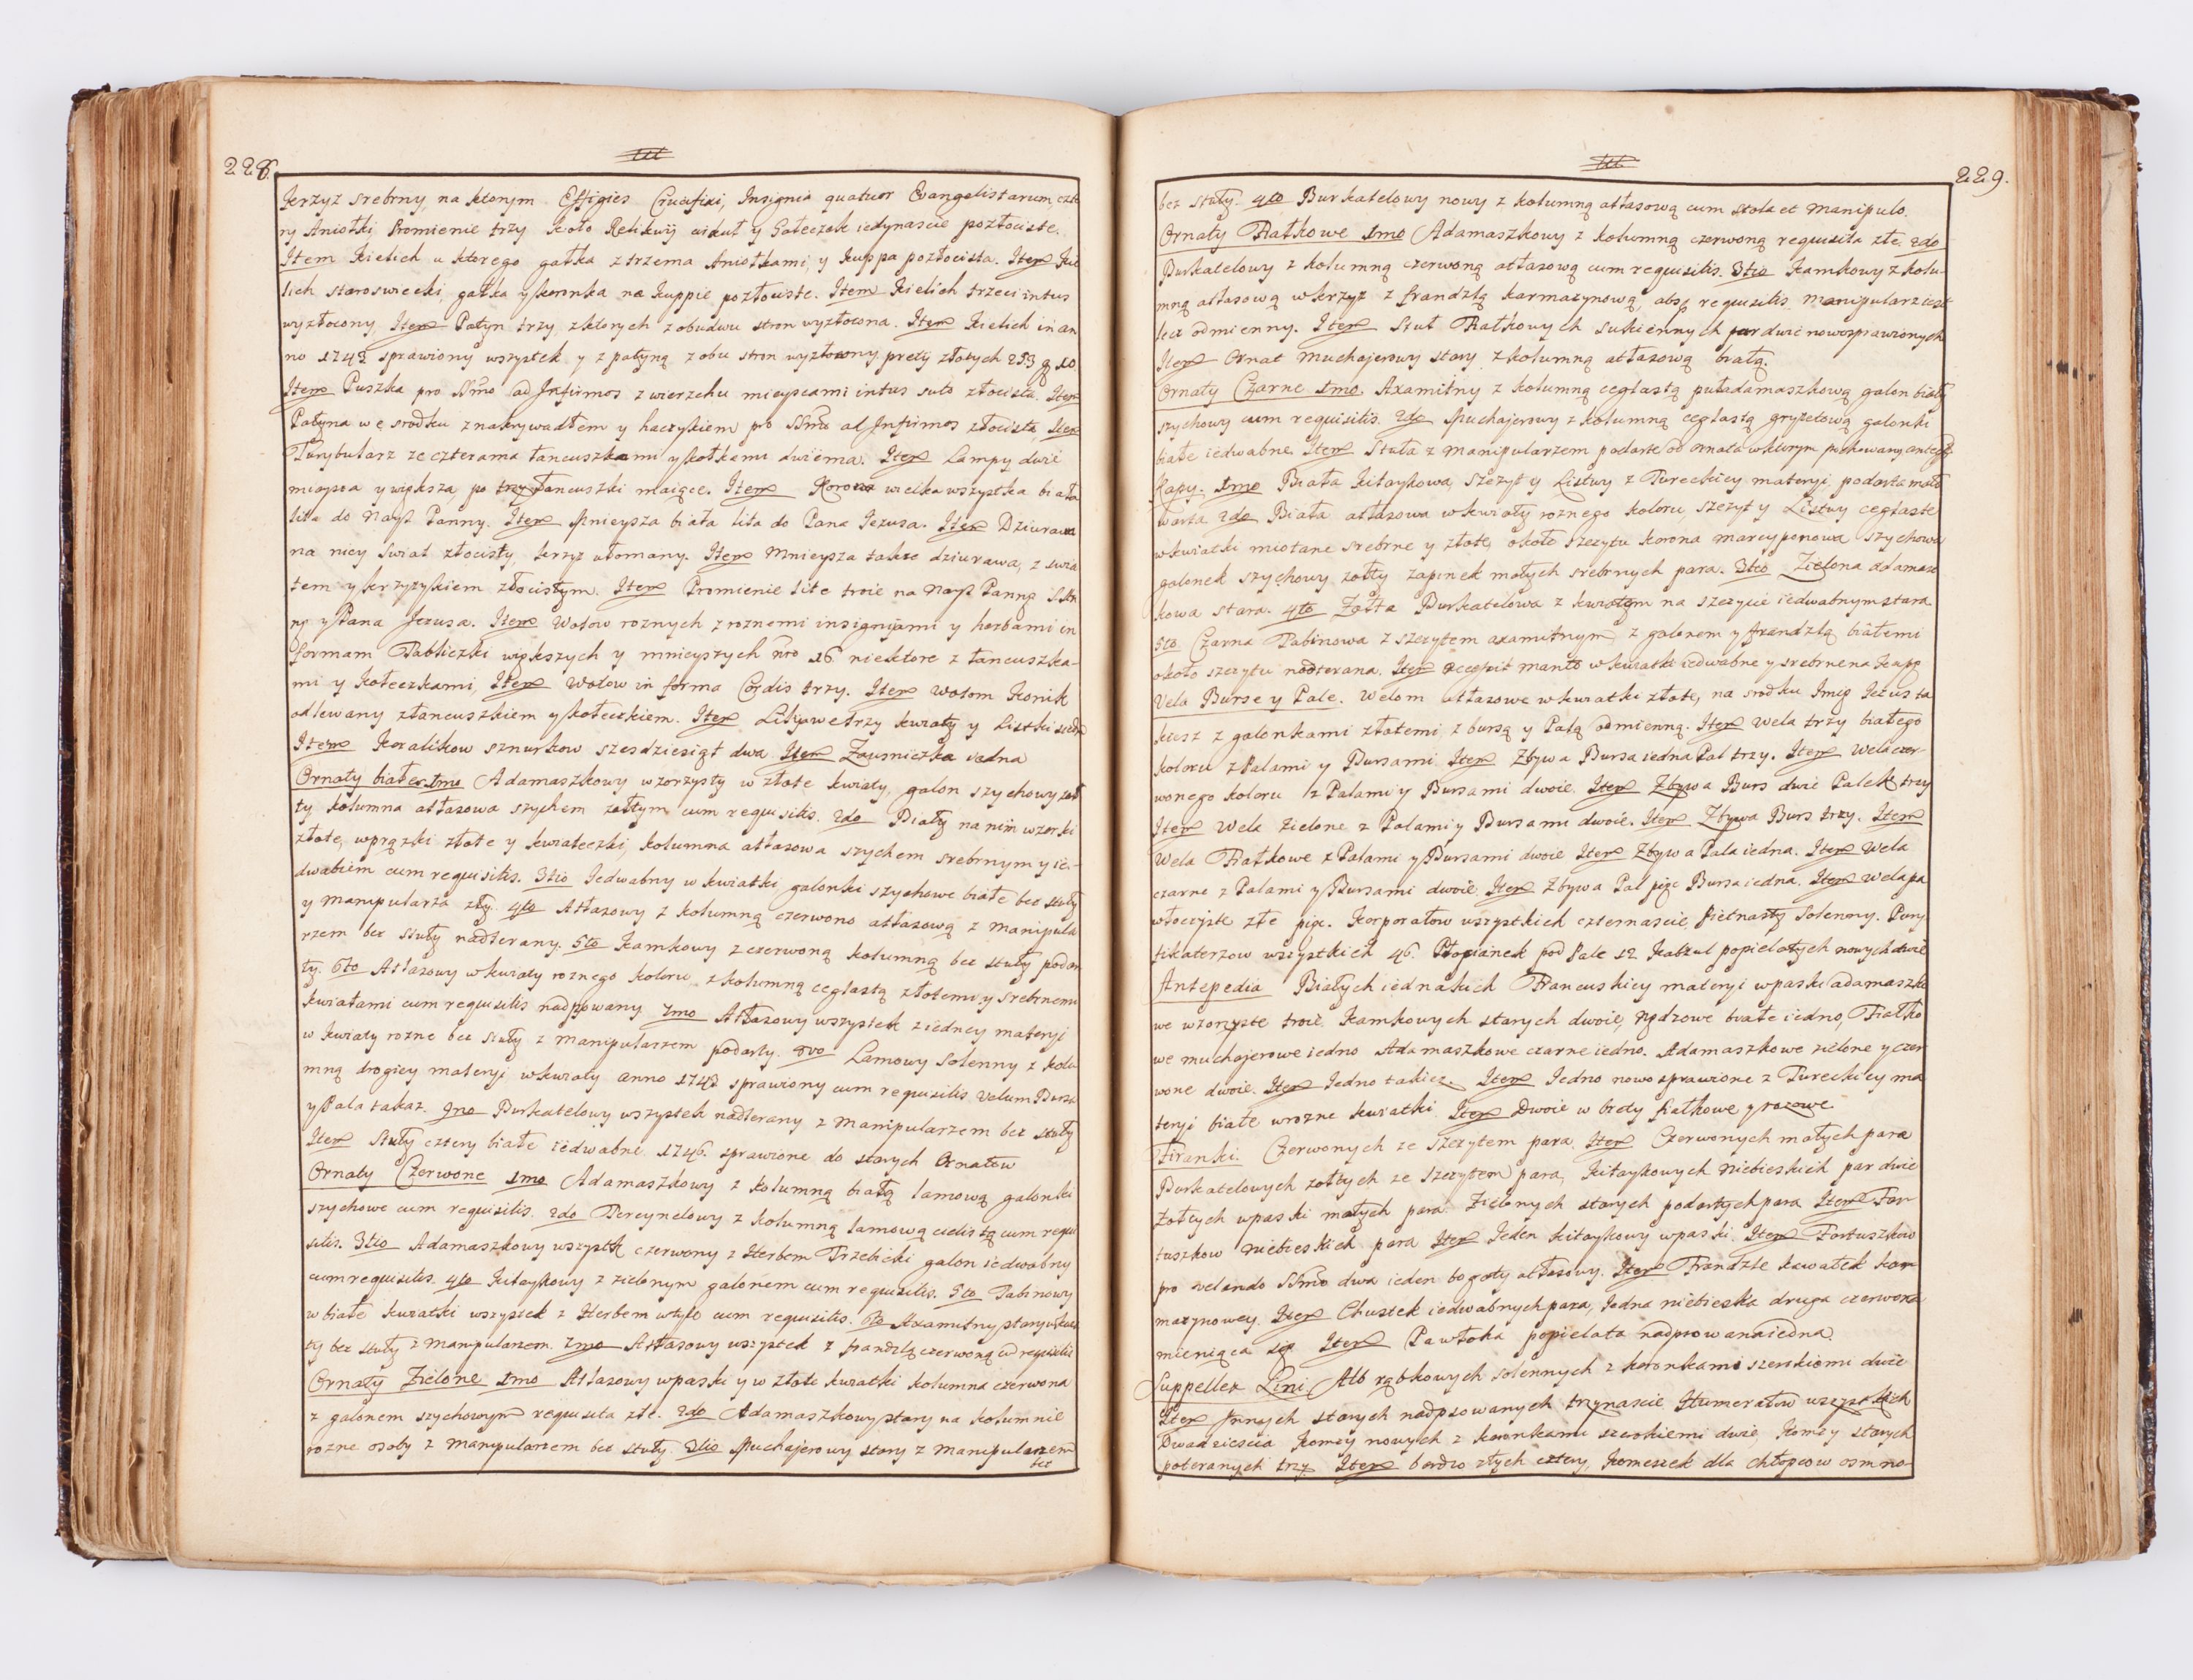 228.
Krzyz srebrny, na ktorym Effigies Crucifixi, Insignia quatuor Evangelistarum, czte
ry Aniołki, Promienie trzy koło Relikwij cirkuł y Gałeczek iedynascie pozłociste.
Item Kielich u ktorego gałka z trzema Aniołkami, y kuppa pozłocista. Item Kie
lich staroswiecki, gałka y koronka na kuppie pozłociste. Item Kielich trzeci intus
wyzłocony Item Patyn trzy, z ktorych z obudwu stron wyzłocona. Item Kielich in an
no 1742 sprawiony wszystek y z patyną z obu stron wyzłocony, prety złotych 253 g 10.
Item Puszka pro SSmo ad Infirmos z wierzchu mieyscami intus suto złocista. Item
Patyna we srodku z nakrywadłem y haczykiem pro SSmo ad Infirmos złocista, Item
Turybularz ze czterama łancuszkami y kołkami dwiema. Item Lampy dwie
mnieysza y większa po trzy łancuszki maiące. Item Korona wielka wszystka biała
lita do Nayś Panny. Item Mnieysza biała lita do Pana Jezusa. Item Dziurawa
na niey Swiat złocisty, krzyz ułomany. Item Mnieysza także dziurawa, z swia
tem y krzyzykiem złocistym. Item Promienie lite troie na Nayś Panną S. An
ną y Pana Jezusa. Item Wotow roznych z roznemi insignijami y herbami in
formam Tabliczki większych y mnieyszych nro 16 niektore z łancuszka-
mi y kołeczkami, Item Wotow in forma Cordis trzy. Item Wotom Konik
odlewany z łancuszkiem y kołeczkiem. Item Lilijowe trzy kwiaty y Listki siedm
Item Koralikow sznurkow szesdziesiąt dwa Item Zausniczka iedna
Ornaty białe 1mo Adamaszkowy wzorzysty w złote kwiaty, galon szychowy żoł
ty kolumna atłasowa szychem żołtym cum requisitis. 2do Biały na nim wzorki
złote, w prążki złote y kwiateczki, kolumna atłasowa szychem srebrnym y ie-
dwabiem cum requisitis. 3tio Jedwabny w kwiatki, galonki szychowe białe bez stuły
y manipularza zły. 4to Atłasowy z kolumną czerwono atłasową z manipula
rzem bez stuły nadterany. 5to Kamkowy z czerwoną kolumną bez stuły podar
ty. 6to Atłasowy w kwiaty roznego koloru, z kolumną ceglastą złotemi y srebrnemi
kwiatami cum requisitis nadpsowany 7mo Atłasowy wszystek z iedney materyi
w kwiaty rozne bez stuły z manipularzem podarty. 8vo Lamowy Solenny z kolu
mną drogiey materyi w kwiaty anno 1743 sprawiony cum requisitis Velum Bursa
y Pala takaż. 9no Burkatelowy wszystek nadterany z manipularzem bez stuły
Item Stuły cztery białe iedwabne 1746. sprawione do starych Ornatow
Ornaty Czerwone 1mo Adamaszkowy z kolumną białą lamową galonki
szychowe cum requisitis. 2do Tercynelowy z kolumną lamową cielistą cum requi
sitis. 3tio Adamaszkowy wszystek czerwony z Herbem Trzebicki galon iedwabny
cum requisitis. 4to Kitaykowy z zielonym galonem cum requisitis. 5to Tabinowy
w białe kwiatki wszystek z Herbem w tyle cum requisitis. 6to Axamitny stary
ty bez stuły z manipularzem. 7mo Atłasowy wszystek z frandzlą czerwoną cu requisitis
Ornaty Zielone 1mo Atłasowy w paski y w złote kwiatki kolumna czerwona
z galonem szychowym requisita złe. 2do Adamaszkowy stary na kolumnie
rozne osoby z manipularzem bez stuły. 3tio Muchajerowy stary z manipularzem
bez
229.
bez stuły. 4to Burkatelowy nowy z kolumną atłasową cum stola et manipulo.
Ornaty Fiałkowe 1mo Adamaszkowy z kolumną czerwoną requisita złe. 2do
Burkatelowy z kolumną czerwoną atłasową cum requisitis. 3tio Kamkowy z kolu-
mną atłasową w krzyz z frandzlą karmazynową, absq requisitis manipularz iest
lecz odmienny. Item Stuł Fiałkowych sukiennych par dwie nowosprawionych
Item Ornat muchajerowy stary z kolumną atłasową białą.
Ornaty Czarne 1mo. Axamitny z kolumną ceglastą puładamaszkową galon biały
szychowy cum requisitis. 2do Muchajerowy z kolumną ceglastą gryzetową galonki
białe iedwabne. Item Stuła z manipularzem podarte od ornatu w ktorym pochowany
Kapy. 1mo Biała kitaykowa, szczyt y Listwy z Tureckiey materyi, podarta mało
warta 2do Biała atłasowa w kwiaty roznego koloru szczyt y Listwy ceglaste
w kwiatki miotane srebrne y złote, około szczytu korona marcyponowa szychowa
galonek szychowy żołty zapinek małych srebrnych para. 3tio Zielona adamasz
kowa stara. 4to Zołta Burkatelowa z kwiatem na szczycie iedwabnym stara
5to Czarna Tabinowa z szczytem axamitnym z galonem y frandzlą białemi
około szczytu nadterana. Item accessit manto w kwiatki iedwabne y srebrne na kapę
Vela Burse y Pale. Welom atłasowe w kwiatki złote, na srodku Imię Jezus ta
kusz z galonkami złotemi z bursą y Palą odmienną. Item Wela trzy białego
koloru z Palami y Bursami Item Zbywa Bursa iedna Pal trzy. Item Wela czer
wonego koloru z Palami y Bursami dwoie. Item Zbywa Burs dwie Palek trzy
Item Wela zielone z Palami y Bursami dwoie. Item Zbywa Burs trzy. Item
Wela Fiałkowe z Palami y Bursami dwoie Item Zbywa Pala iedna. Item Wela
czarne z Palami y Bursami dwoie. Item Zbywa Pal pięc Bursa iedna. Item Wela pa
włoczyste złe pięc. Korporałow wszystkich czternascie, Pietnasty Solenny. Pury
fikaterzow wszystkich 46. Płopianek pod Pale 12 Kabzul popielatych nowych dwie
Antepedia Białych iednakich Francuskiey materyi w paski adamaszko
we wzorzyste troie. Kamkowych starych dwoie, rządzowe białe iedno, Fiałko
we muchajerowe iedno Adamaszkowe czarne iedno. Adamaszkowe zielone y czer
wone dwoie. Item Jedno takież. Item Jedno nowo sprawione z Tureckiey ma
teryi białe w rozne kwiatki. Item Dwoie w brety fiałkowe y rozowe.
Firanki. Czerwonych ze szczytem para, Item Czerwonych małych para
Burkatelowych żołtych ze szczytem para, Kitaykowych niebieskich par dwie
Zołtych w paski małych para Zielonych starych podartych para Item For
tuszkow niebieskich para Item Jeden kitaykowy w paski. Item Fortuszkow
pro velando SSmo dwa ieden bogaty atłasowy. Item Frandzle kawałek kar
mazynowey. Item Chustek iedwabnych para, Jedna niebieska druga czerwona
mieniąca się Item Pawłoka popielata nadpsowana iedna.
Suppellex Lini. Alb rąbkowych solennych z koronkami szerokiemi dwie
Item Innych starych nadpsowanych trzynascie Humerałow wszystkich
Dwadziescia Komży nowych z koronkami szerokiemi dwie, Komży starych
poteranych trzy. Item bardzo złych cztery, Komeszek dla chłopcow osmna-